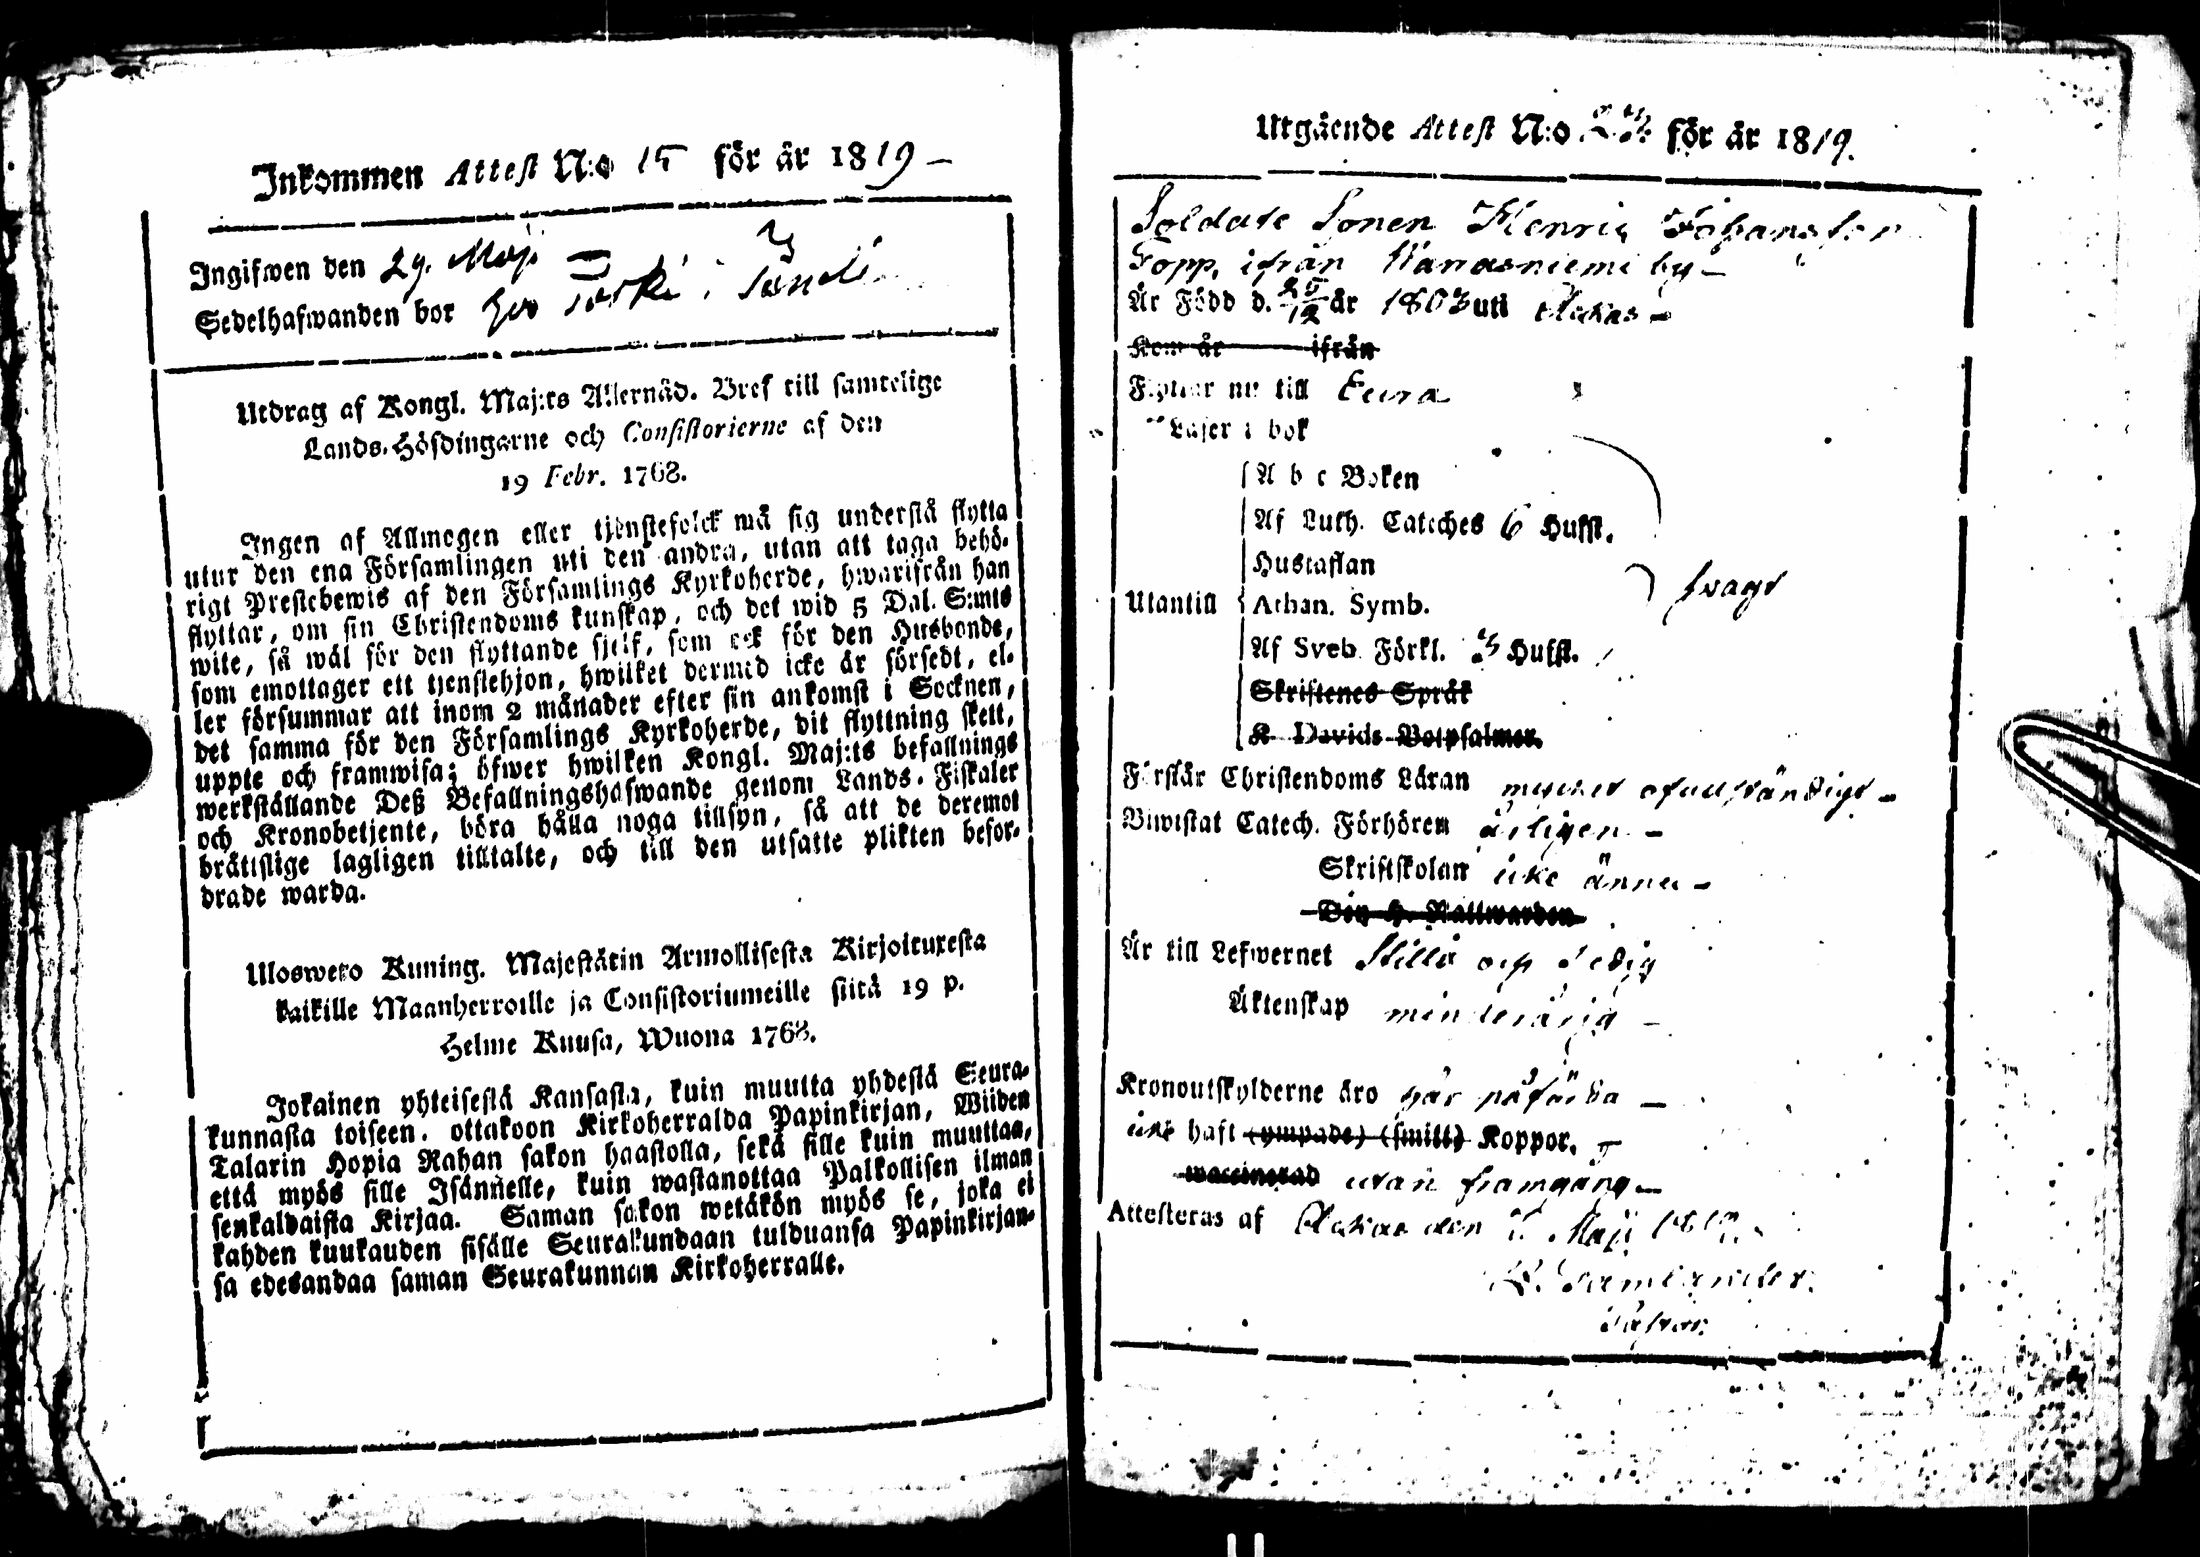 Inkommen Attest N:o 15 för år 1819 –
Ingifwen den 29. Maji
Sedelhafwanden bor hos
Utdrag af Kongl. Maj:ts Allernåd. Bref till samtelige
Lands-Höfdingarne och Consistorierne af den
19 Febr. 1768.
Ingen af Allmogen eller tjenstefolck må sig understå flytta
utur den ena Församlingen uti den andra, utan att taga behö-
rigt Prestebewis af den Församlings Kyrkoherde, hwarifrån han
flyttar, om sin Christendoms kunskap, och det wid 5 Dal. S:mts
wite, så wäl för den flyttande sjelf, som ock för den Husbonde,
som emottager ett tjenstehjon, hwilket dermed icke är försedt, el-
ler försummar att inom 2 månader efter sin ankomst i Socknen,
det samma för den Församlings Kyrkoherde, dit flyttning skett,
uppte och framwisa; öfwer hwilken Kongl. Maj:ts befallnings
werkställande Deß Befallningshafwande genom Lands-Fiskaler
och Kronobetjente, böra hålla noga tillsyn, så att de deremot
brättslige lagligen tilltalte, och till den utsatte plikten befor-
drade warda.
Uloswero Kuning. Majestätin Armollisesta Kirjoituxesta
kaikille Maanherroille ja Consistoriumeille siitä 19 p.
Helme Kuusa, Wuona 1768.
Jokainen yhteisestä Kansasta, kuin muutta yhdestä Seura-
kunnasta toiseen. ottakoon Kirkoherralda Papinkirjan, Wiiden
Talarin Hopia Rahan sakon haastolla, sekä sille kuin muuttaa,
että myös sille Isännelle, kuin wastanottaa Palkollisen ilman
senkaldaista Kirjaa. Saman sakon wetäkön myös se, joka ei
kahden kuukauden sisälle Seurakundaan tulduansa Papinkirjan-
sa edesandaa saman Seurakunnan Kirkoherralle.
Utgående Attest N:o för år 1819.
Soldate Sonen Henric Johansson
Topp, ifrån Kanasniemi by –
Är Född d. 25/12 år 1803 uti Ackas –
Kom år ifrån
Flyttar nu till Eura
Läser i bok
A b c Boken
Af Luth. Cateches 6 Hufst.
Hustaflan
Utantill Athan. Symb. svagt
Af Sveb. Förkl. 3 Hufst.
Skriftenes Språk
K. Davids Botpsalmer.
Förstår Christendoms Läran mycket ofullständigt –
Biwistat Catech. Förhören årligen –
Skriftskolan icke ännu –
Den H. Nattwarden
Är till Lefwernet Stilla och Sedig
Äktenskap minderårig –
Kronoutskylderne äro här påförda –
icke haft (ympade) (smitt) Koppor. –
waccinerad utan framgång –
Attesteras af Ackas den Maji 1819.